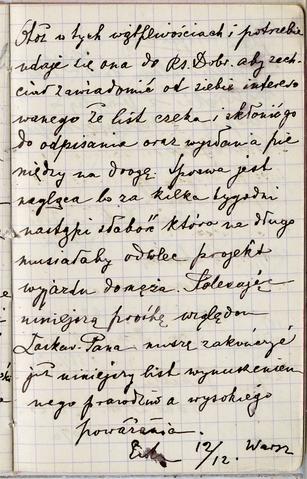 Otoż w tych wątpliwościach i potrzebie
udaje się ona do Ks. Dobr. aby zech-
ciał zawiadomić od siebie intereso
wanego że list czeka i skłonić go
do odpisania oraz wysłania pie
niędzy na drogę. Sprawa jest
nagląca bo za kilka tygodni
nastąpi słabość która na długo
musiałaby odwlec projekt
wyjazdu do męża. Polecając
niniejszą prośbę względom
Łaskaw. Pana muszę zakończyć
już niniejszy list wynurzeniem
mego prawdziwego i wysokiego
poważania.
12/12. Warsz